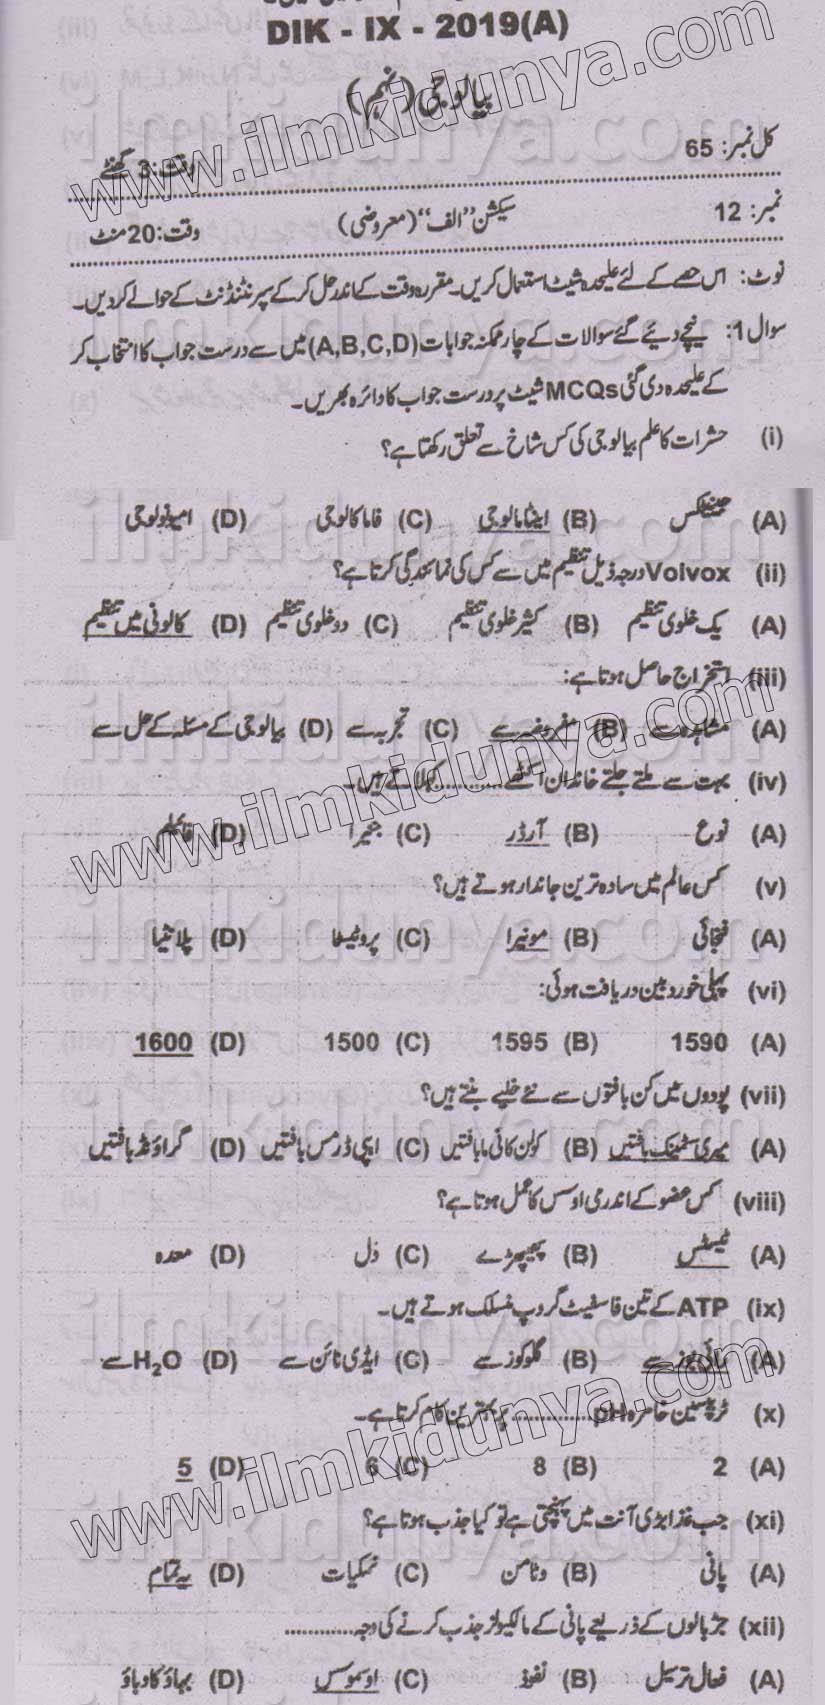 DIK - IX - 2019(A)
بیالوجی (نہم)
کل نمبر: 65 وقت: 3 گھنٹے
نمبر: 12 سیکشن "الف" (معروضی) وقت: 20 منٹ
نوٹ: اس حصے کے لئے علیحدہ شیٹ استعمال کریں۔ مقررہ وقت کے اندر حل کر کے سپرنٹنڈنٹ کے حوالے کر دیں۔
سوال 1: نیچے دیئے گئے سوالات کے چار ممکنہ جوابات (A,B,C,D) میں سے درست جواب کا انتخاب کر
کے علیحدہ دی گئی MCQs شیٹ پر درست جواب کا دائرہ بھریں۔
(i) حشرات کا علم بیالوجی کی کس شاخ سے تعلق رکھتا ہے؟
(A) جینیٹکس (B) اینٹامالوجی (C) فاماکالوجی (D) امیونولوجی
(ii) Volvox درجہ ذیل تنظیم میں سے کس کی نمائندگی کرتا ہے؟
(A) یک خلوی تنظیم (B) کثیر خلوی تنظیم (C) دو خلوی تنظیم (D) کالونی میں تنظیم
(iii) استخراج حاصل ہوتا ہے:
(A) مشاہدہ سے (B) مفروضہ سے (C) تجربہ سے (D) بیالوجی کے مسئلہ کے حل سے
(iv) بہت سے ملتے جلتے خاندان اکٹھے .......... کہلاتے ہیں۔
(A) نوع (B) آرڈر (C) جنیرا (D) فائیلم
(v) کس عالم میں سادہ ترین جاندار ہوتے ہیں؟
(A) فنجائی (B) مونیرا (C) پروٹیسٹا (D) پلانٹیا
(vi) پہلی خوردبین دریافت ہوئی:
(A) 1590 (B) 1595 (C) 1500 (D) 1600
(vii) پودوں میں کن بافتوں سے نئے خلیے بنتے ہیں؟
(A) میری سٹیمیٹک بافتیں (B) کولن کائی ما بافتیں (C) ایپی ڈرمس بافتیں (D) گراؤنڈ بافتیں
(viii) کس عضو کے اندر می اوسس کا عمل ہوتا ہے؟
(A) ٹیسٹس (B) پھیپھڑے (C) دل (D) معدہ
(ix) ATP کے تین فاسفیٹ گروپ منسلک ہوتے ہیں۔
(A) رائی بوز سے (B) گلوکوز سے (C) ایڈی نائن سے (D) H₂O سے
(x) ٹرپسین خامرہ pH .......... پر بہترین کام کرتا ہے۔
(A) 2 (B) 8 (C) 6 (D) 5
(xi) جب غذا بڑی آنت میں پہنچتی ہے تو کیا جذب ہوتا ہے؟
(A) پانی (B) وٹامن (C) نمکیات (D) یہ تمام
(xii) جڑ بالوں کے ذریعے پانی کے مالیکیولز جذب کرنے کی وجہ ..........
(A) فعال ترسیل (B) نفوذ (C) اوسموسس (D) بہاؤ کا دباؤ
www.ilmkidunya.com
www.ilmkidunya.com
www.ilmkidunya.com